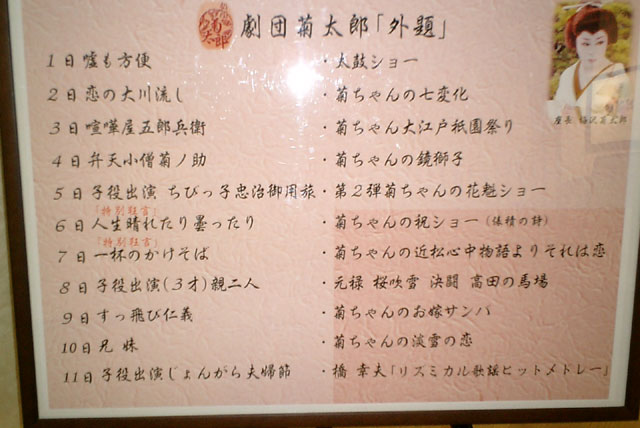 劇団菊太郎「外題」
1日 嘘も方便 ・太鼓ショー
2日 恋の大川流し ・菊ちゃんの七変化
3日 喧嘩屋五郎兵衛 ・菊ちゃん大江戸祇園祭り
4日 弁天小僧菊ノ助 ・菊ちゃんの鏡獅子
5日 子役出演 ちびっ子忠治御用旅 ・第2弾菊ちゃんの花魁ショー
「特別狂言」
6日 人生晴れたり曇ったり ・菊ちゃんの祝ショー(俵積の詩)
「特別狂言」
7日 一杯のかけそば ・菊ちゃんの近松心中物語よりそれは恋
8日 子役出演(3才)親二人 ・元禄 桜吹雪 決闘 高田の馬場
9日 すっ飛び仁義 ・菊ちゃんのお嫁サンバ
10日 兄 妹 ・菊ちゃんの淡雪の恋
11日 子役出演じょんがら夫婦節 ・橋 幸夫「リズミカル歌謡ヒットメトレー」
座長 梅沢菊太郎